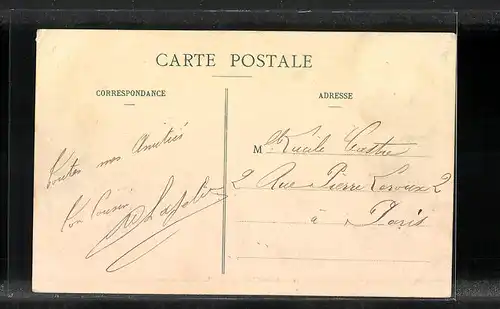 CARTE POSTALE
CORRESPONDANCE
ADRESSE
Toutes mes Amitiés
Ton Cousin
M Lucile
2 Rue Pierre Leroux 2
à Paris